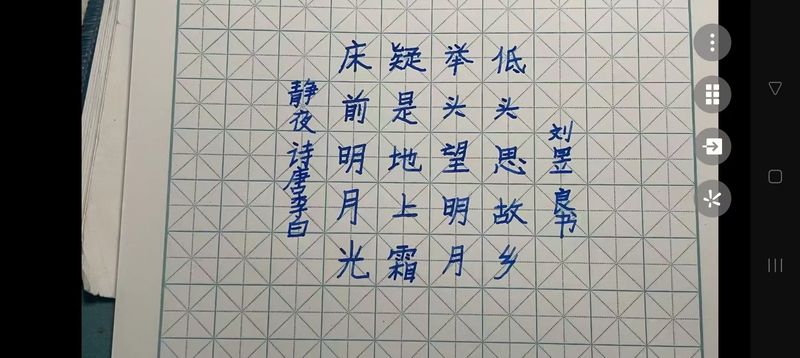 静夜诗唐李白
床前明月光
疑是地上霜
举头望明月
低头思故乡
刘良书